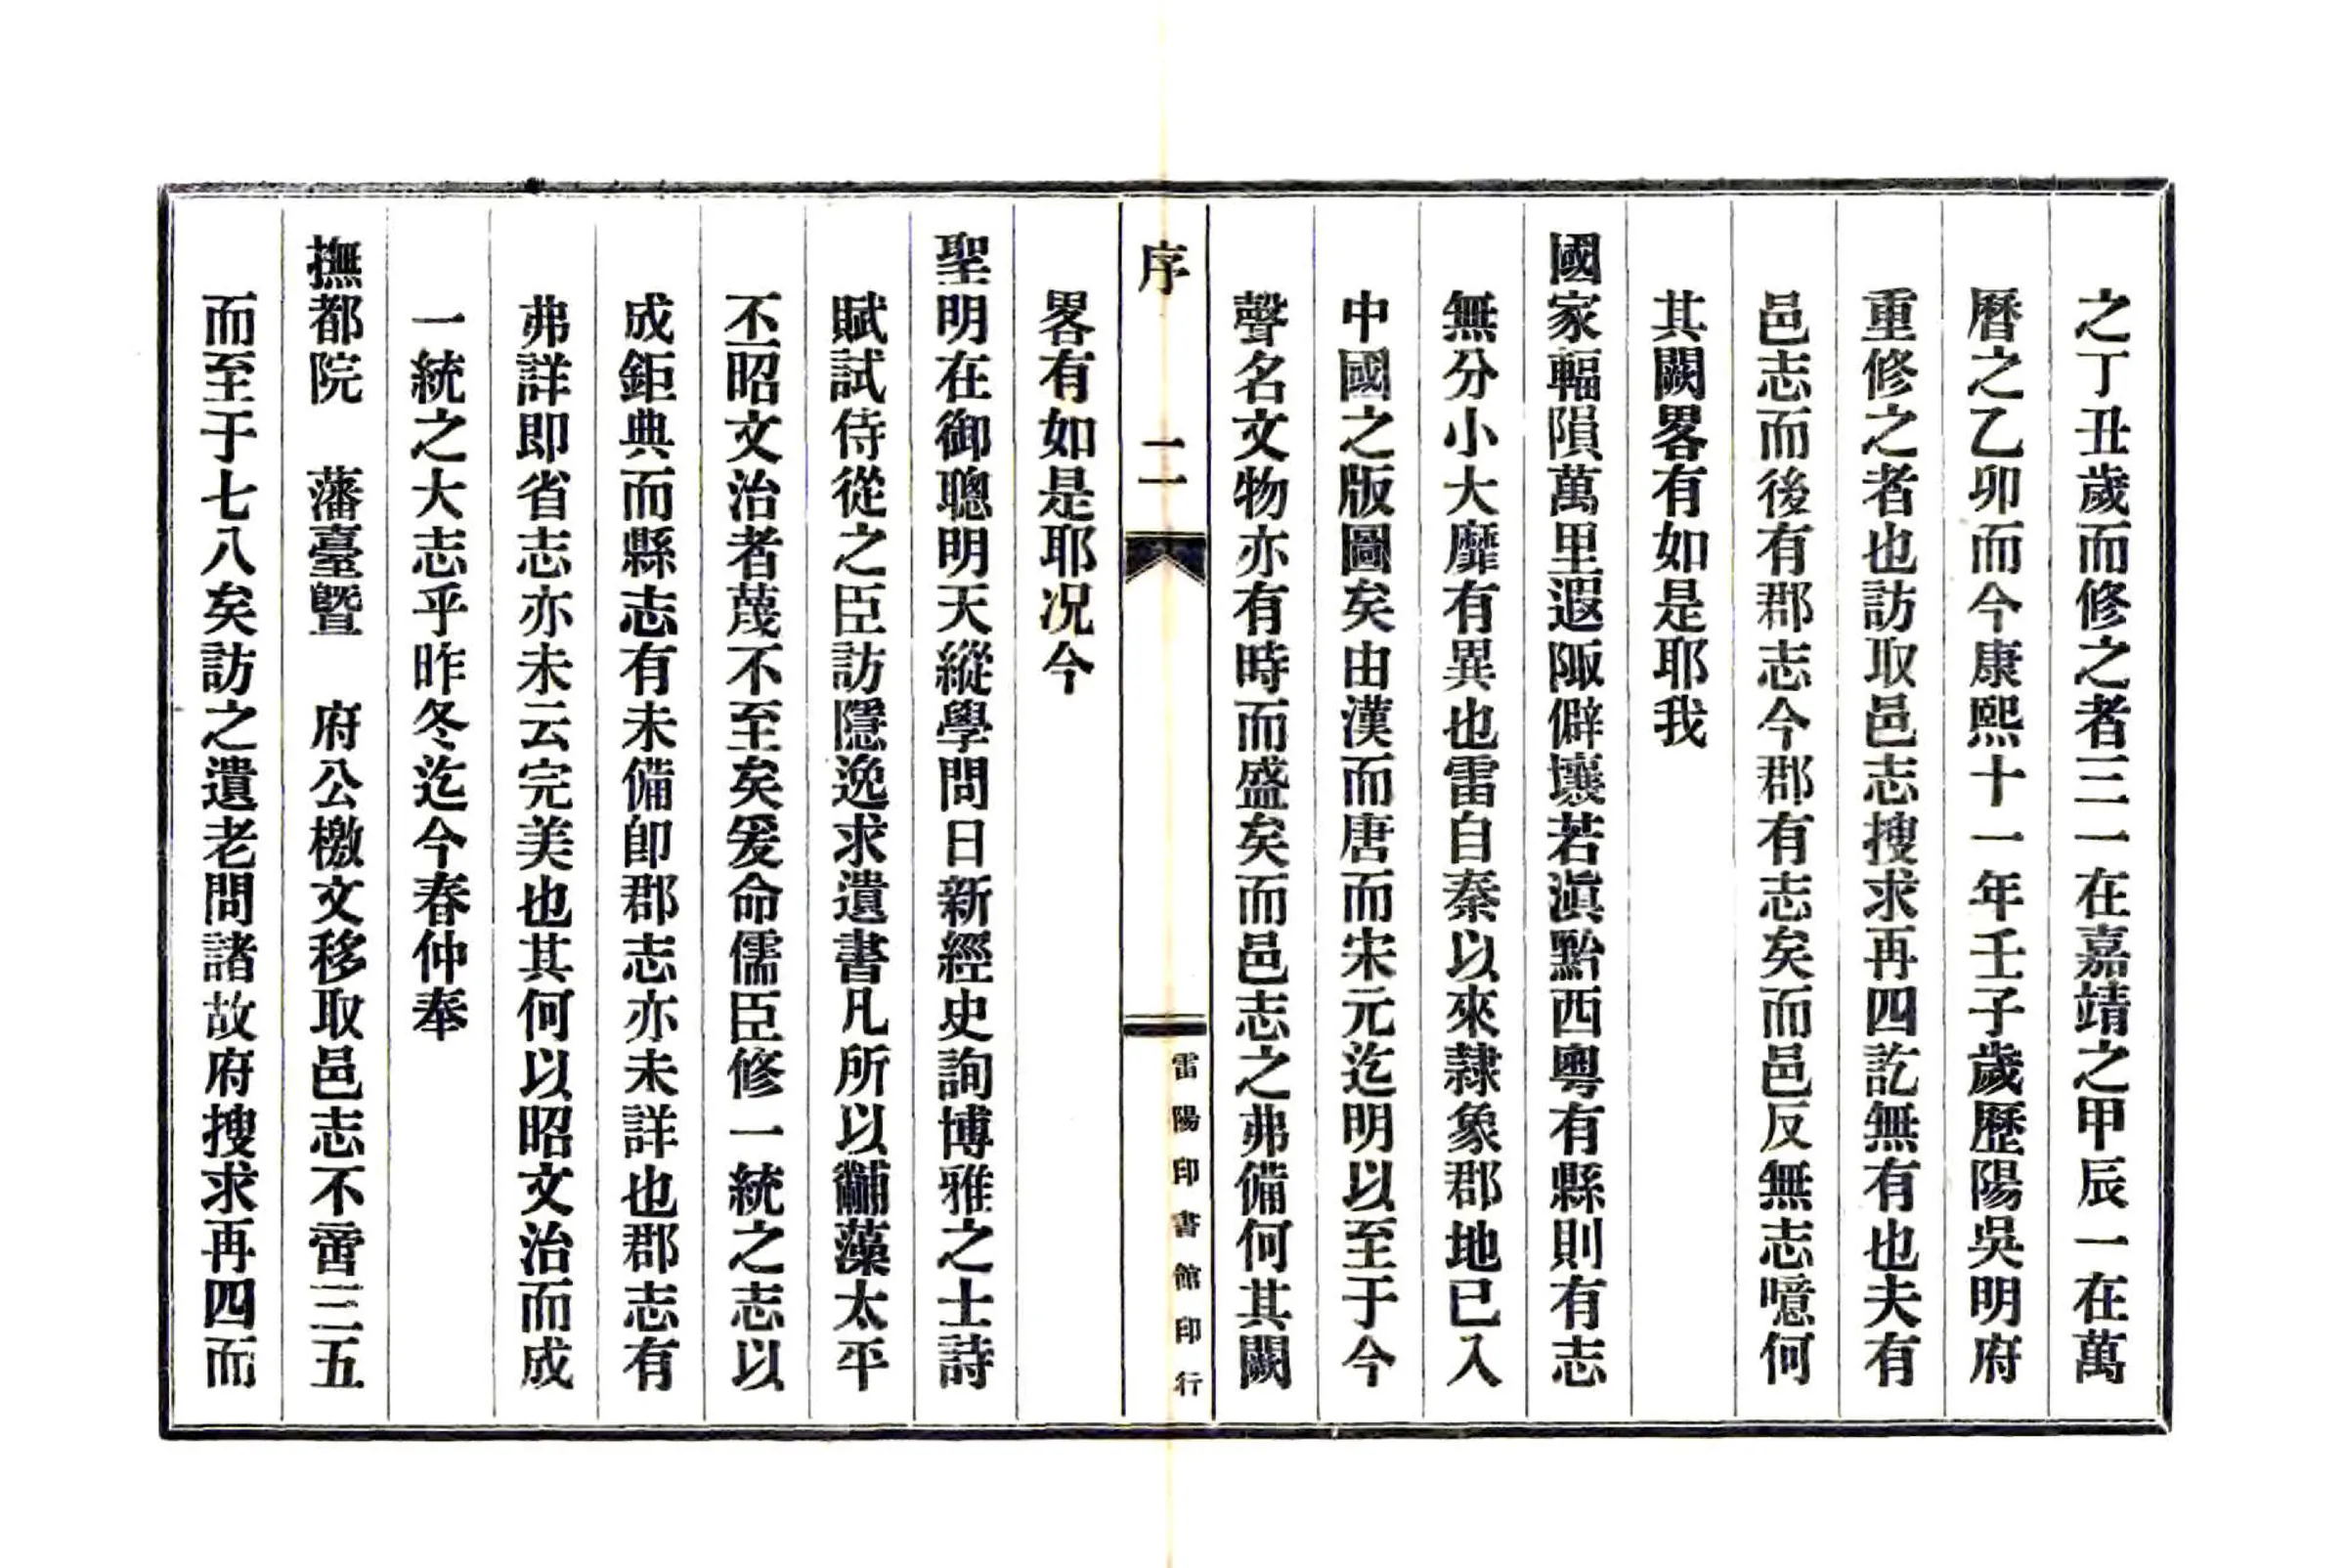 之丁丑歲而修之者三一在嘉靖之甲辰一在萬
曆之乙卯而今康熙十一年壬子歲歷陽吳明府
重修之者也訪取邑志搜求再四訖無有也夫有
邑志而後有郡志今郡有志矣而邑反無志噫何
其闕畧有如是耶我
國家輻隕萬里遐陬僻壤若滇黔西粵有縣則有志
無分小大靡有異也雷自秦以來隸象郡地已入
中國之版圖矣由漢而唐而宋元迄明以至于今
聲名文物亦有時而盛矣而邑志之弗備何其闕
序 二
雷陽印書館印行
畧有如是耶况今
聖明在御聰明天縱學問日新經史詢博雅之士詩
賦試侍從之臣訪隱逸求遺書凡所以黼藻太平
丕昭文治者蔑不至矣爰命儒臣修一統之志以
成鉅典而縣志有未備卽郡志亦未詳也郡志有
弗詳即省志亦未云完美也其何以昭文治而成
一統之大志乎昨冬迄今春仲奉
撫都院 藩臺暨 府公檄文移取邑志不啻三五
而至于七八矣訪之遺老問諸故府搜求再四而